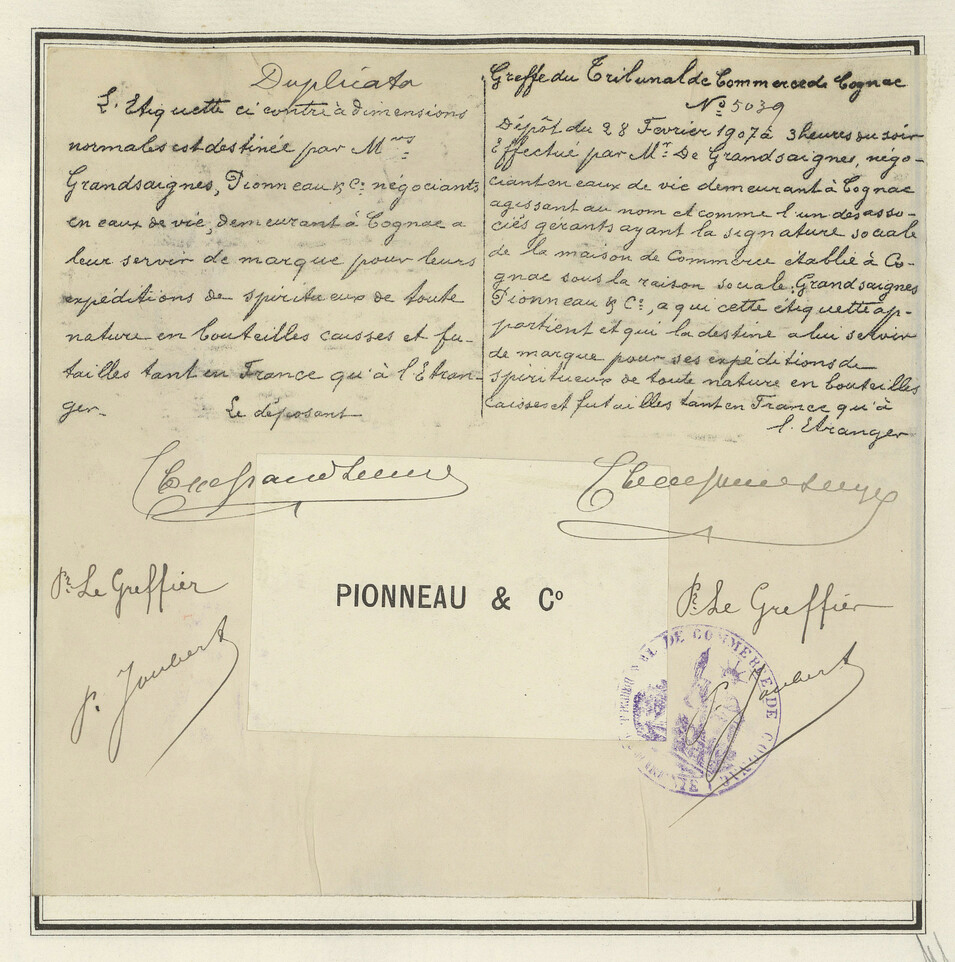 Duplicata
L'Etiquette ci contre à dimensions
normales est destinée par Mrs
Grandsaignes, Pionneau & Co négociants
en eaux de vie, demeurant à Cognac a
leur servir de marque pour leurs
expéditions de spiritueux de toute
nature en bouteilles caisses et fu-
tailles tant en France qu'à l'Etran-
ger.
Le déposant
Greffe du Tribunal de Commerce de Cognac
No 5039
Dépôt du 28 Fevrier 1907 à 3 heures du soir
Effectué par Mr. De Grandsaignes, négo-
ciant en eaux de vie demeurant à Cognac
agissant au nom et comme l'un des asso-
ciés gérants ayant la signature sociale
de la maison de Commerce etablie à Co-
gnac sous la raison sociale: Grandsaignes
Pionneau & Co, a qui cette étiquette ap-
partient et qui la destine a lui servir
de marque pour ses expéditions de
spiritueux de toute nature en bouteilles
caisses et futailles tant en France qu'à
l'Etranger
PIONNEAU & Co
Pr. Le Greffier
P. Joubert
Pr. Le Greffier
P. Joubert
TRIBUNAL DE COMMERCE DE COGNAC